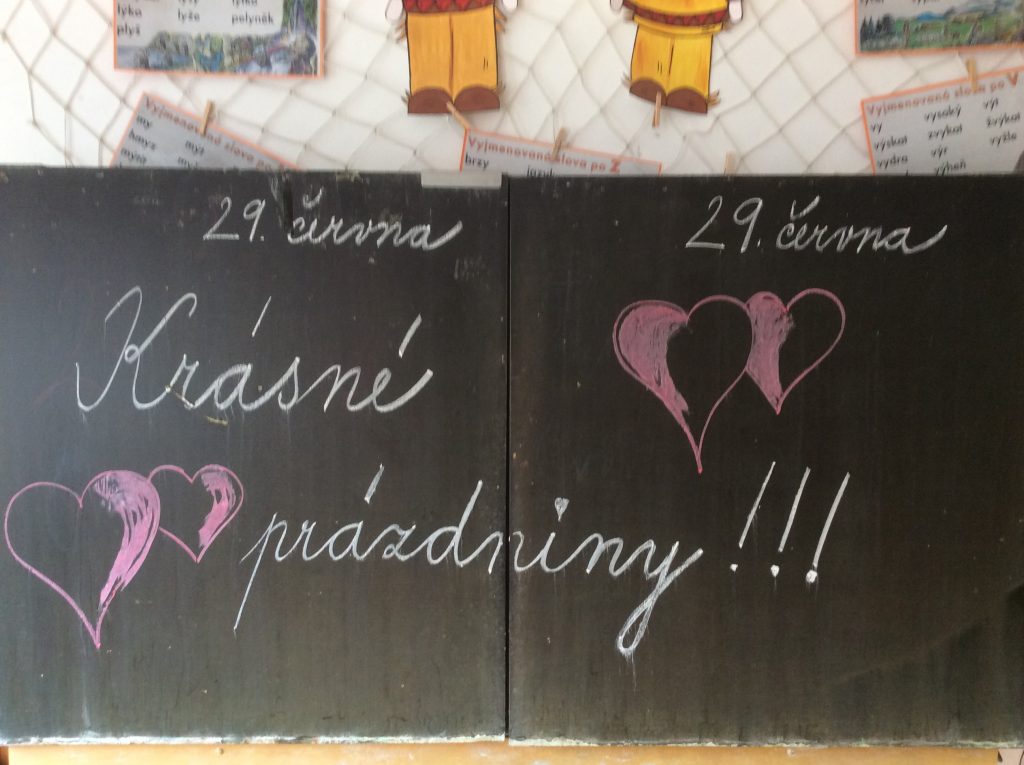 lýka
lyže
pelyněk
plyš
Vyjmenovaná slova po
my
myš
Vyjmenovaná slova po Z
brzy
jazyk
Vyjmenovaná slova po V
vy
vysoký
výt
výskat
zvykat
žvýkat
vydra
výr
vyžle
výheň
29. června
29. června
Krásné
prázdniny!!!